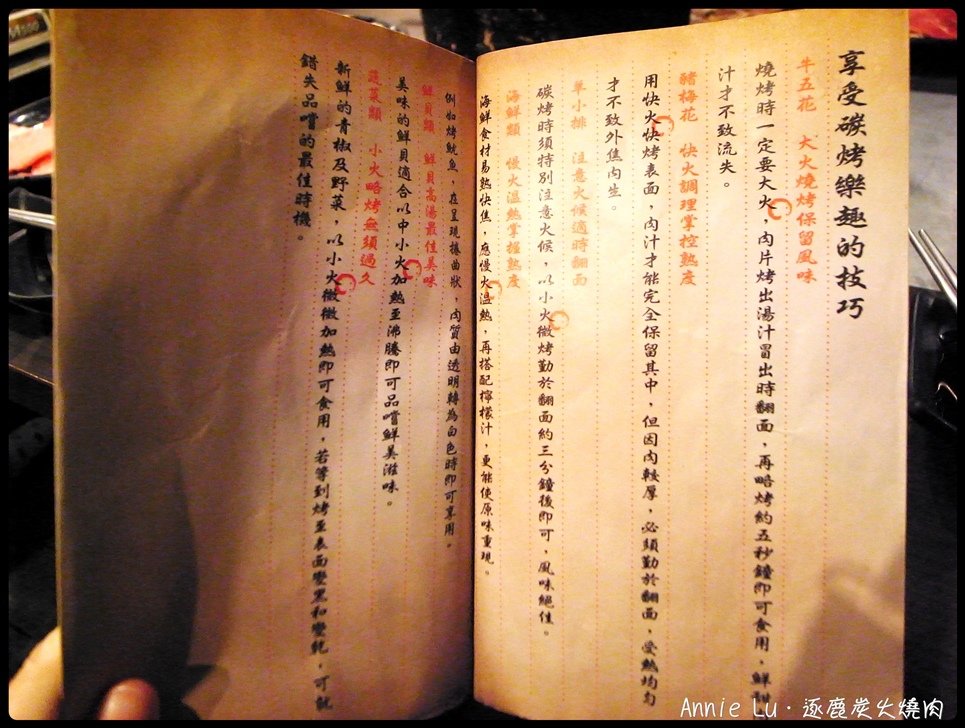 享受碳烤樂趣的技巧
牛五花 大火燒烤保留風味
燒烤時一定要大火，肉片烤出湯汁冒出時翻面，再略烤約五秒鐘即可食用，鮮甜
汁才不致流失。
豬梅花 快火調理掌控熟度
用快火快烤表面，肉汁才能完全保留其中，但因肉較厚，必須勤於翻面，受熱均勻
才不致外焦內生。
羊小排 注意火候適時翻面
碳烤時須特別注意火候，以小火微烤勤於翻面約三分鐘後即可，風味絕佳。
海鮮類 慢火溫熱掌握熟度
海鮮食材易熟快焦，應慢火溫熱，再搭配檸檬汁，更能使原味重現。
例如烤魷魚，在呈現捲曲狀，肉質由透明轉為白色時即可享用。
鮮貝類 鮮貝高湯最佳美味
美味的鮮貝適合以中小火加熱至沸騰即可品嚐鮮美滋味。
蔬菜類 小火略烤無須過久
新鮮的青椒及野菜，以小火微微加熱即可食用，若等到烤至表面變黑和變乾，可就
錯失品嚐的最佳時機。
Annie Lu·逐鹿炭火燒肉